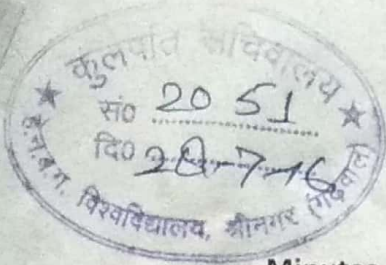 कुलपति सचिवालय
सं० 20 51
दि० 28-7-16
हे.न.ब.ग. विश्वविद्यालय, श्रीनगर (गढ़वाल)